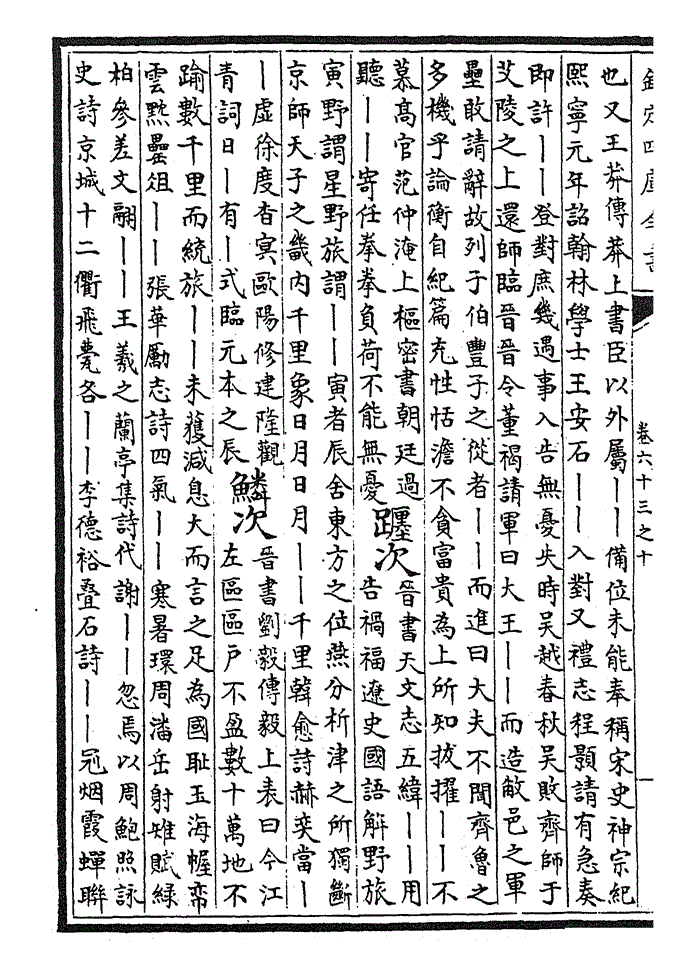 欽定四庫全書
卷六十三之十
也又王莽傳莽上書臣以外屬｜｜備位未能奉稱宋史神宗紀
熙寧元年詔翰林學士王安石｜｜入對又禮志程顥請有急奏
即許｜｜登對庶幾遇事入告無憂失時吳越春秋吳敗齊師于
艾陵之上還師臨晉晉令董褐請軍曰大王｜｜而造敝邑之軍
壘敢請辭故列子伯豐子之從者｜｜而進曰大夫不聞齊魯之
多機乎論衡自紀篇充性恬澹不貪富貴為上所知拔擢｜｜不
慕髙官范仲淹上樞密書朝廷過
聽｜｜寄任拳拳負荷不能無憂
躔次
晉書天文志五緯｜｜用
告禍福遼史國語解野旅
寅野謂星野旅謂｜｜寅者辰舍東方之位燕分析津之所獨斷
京師天子之畿内千里象日月日月｜｜千里韓愈詩赫奕當｜
｜虛徐度杳冥歐陽修建隆觀
青詞日｜有｜式臨元本之辰
鱗次
晉書劉毅傳毅上表曰今江
左區區户不盈數十萬地不
踰數千里而統旅｜｜未獲減息大而言之足為國耻玉海幄帟
雲黙罍俎｜｜張華勵志詩四氣｜｜寒暑環周潘岳射雉賦緑
柏參差文翮｜｜王羲之蘭亭集詩代謝｜｜忽焉以周鮑照詠
史詩京城十二衢飛甍各｜｜李德裕疊石詩｜｜冠烟霞蟬聯